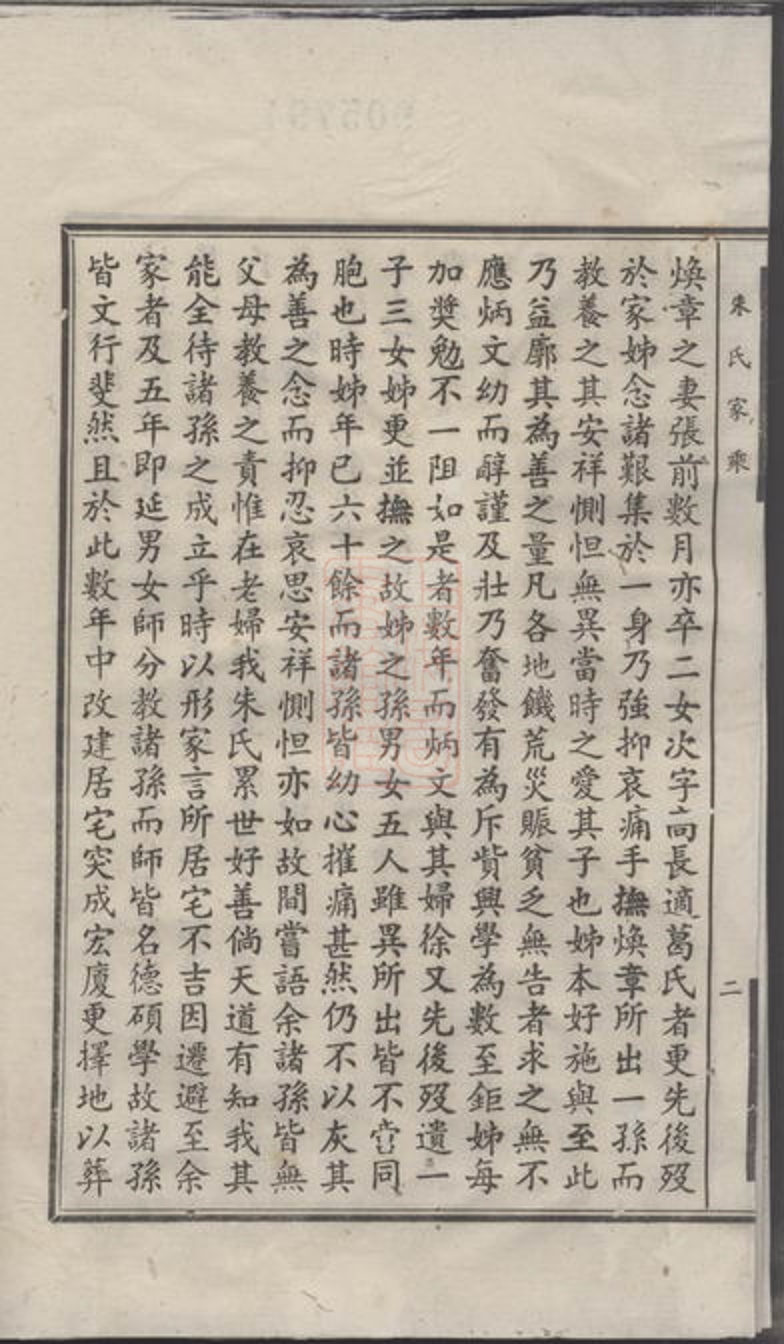 朱氏家乘
二
煥章之妻張前數月亦卒二女次字高長適葛氏者更先後歿
於家姊念諸艱集於一身乃強抑哀痛手撫煥章所出一孫而
教養之其安祥惻怛無異當時之愛其子也姊本好施與至此
乃益廓其為善之量凡各地饑荒災賑貧乏無告者求之無不
應炳文幼而醇謹及壯乃奮發有為斥貲興學為數至鉅姊每
加奬勉不一阻如是者數年而炳文與其婦徐又先後歿遺一
子三女姊更並撫之故姊之孫男女五人雖異所出皆不啻同
胞也時姊年已六十餘而諸孫皆幼心摧痛甚然仍不以灰其
為善之念而抑忍哀思安祥惻怛亦如故間嘗語余諸孫皆無
父母教養之責惟在老婦我朱氏累世好善倘天道有知我其
能全待諸孫之成立乎時以形家言所居宅不吉因遷避至余
家者及五年即延男女師分教諸孫而師皆名德碩學故諸孫
皆文行斐然且於此數年中改建居宅突成宏廈更擇地以葬